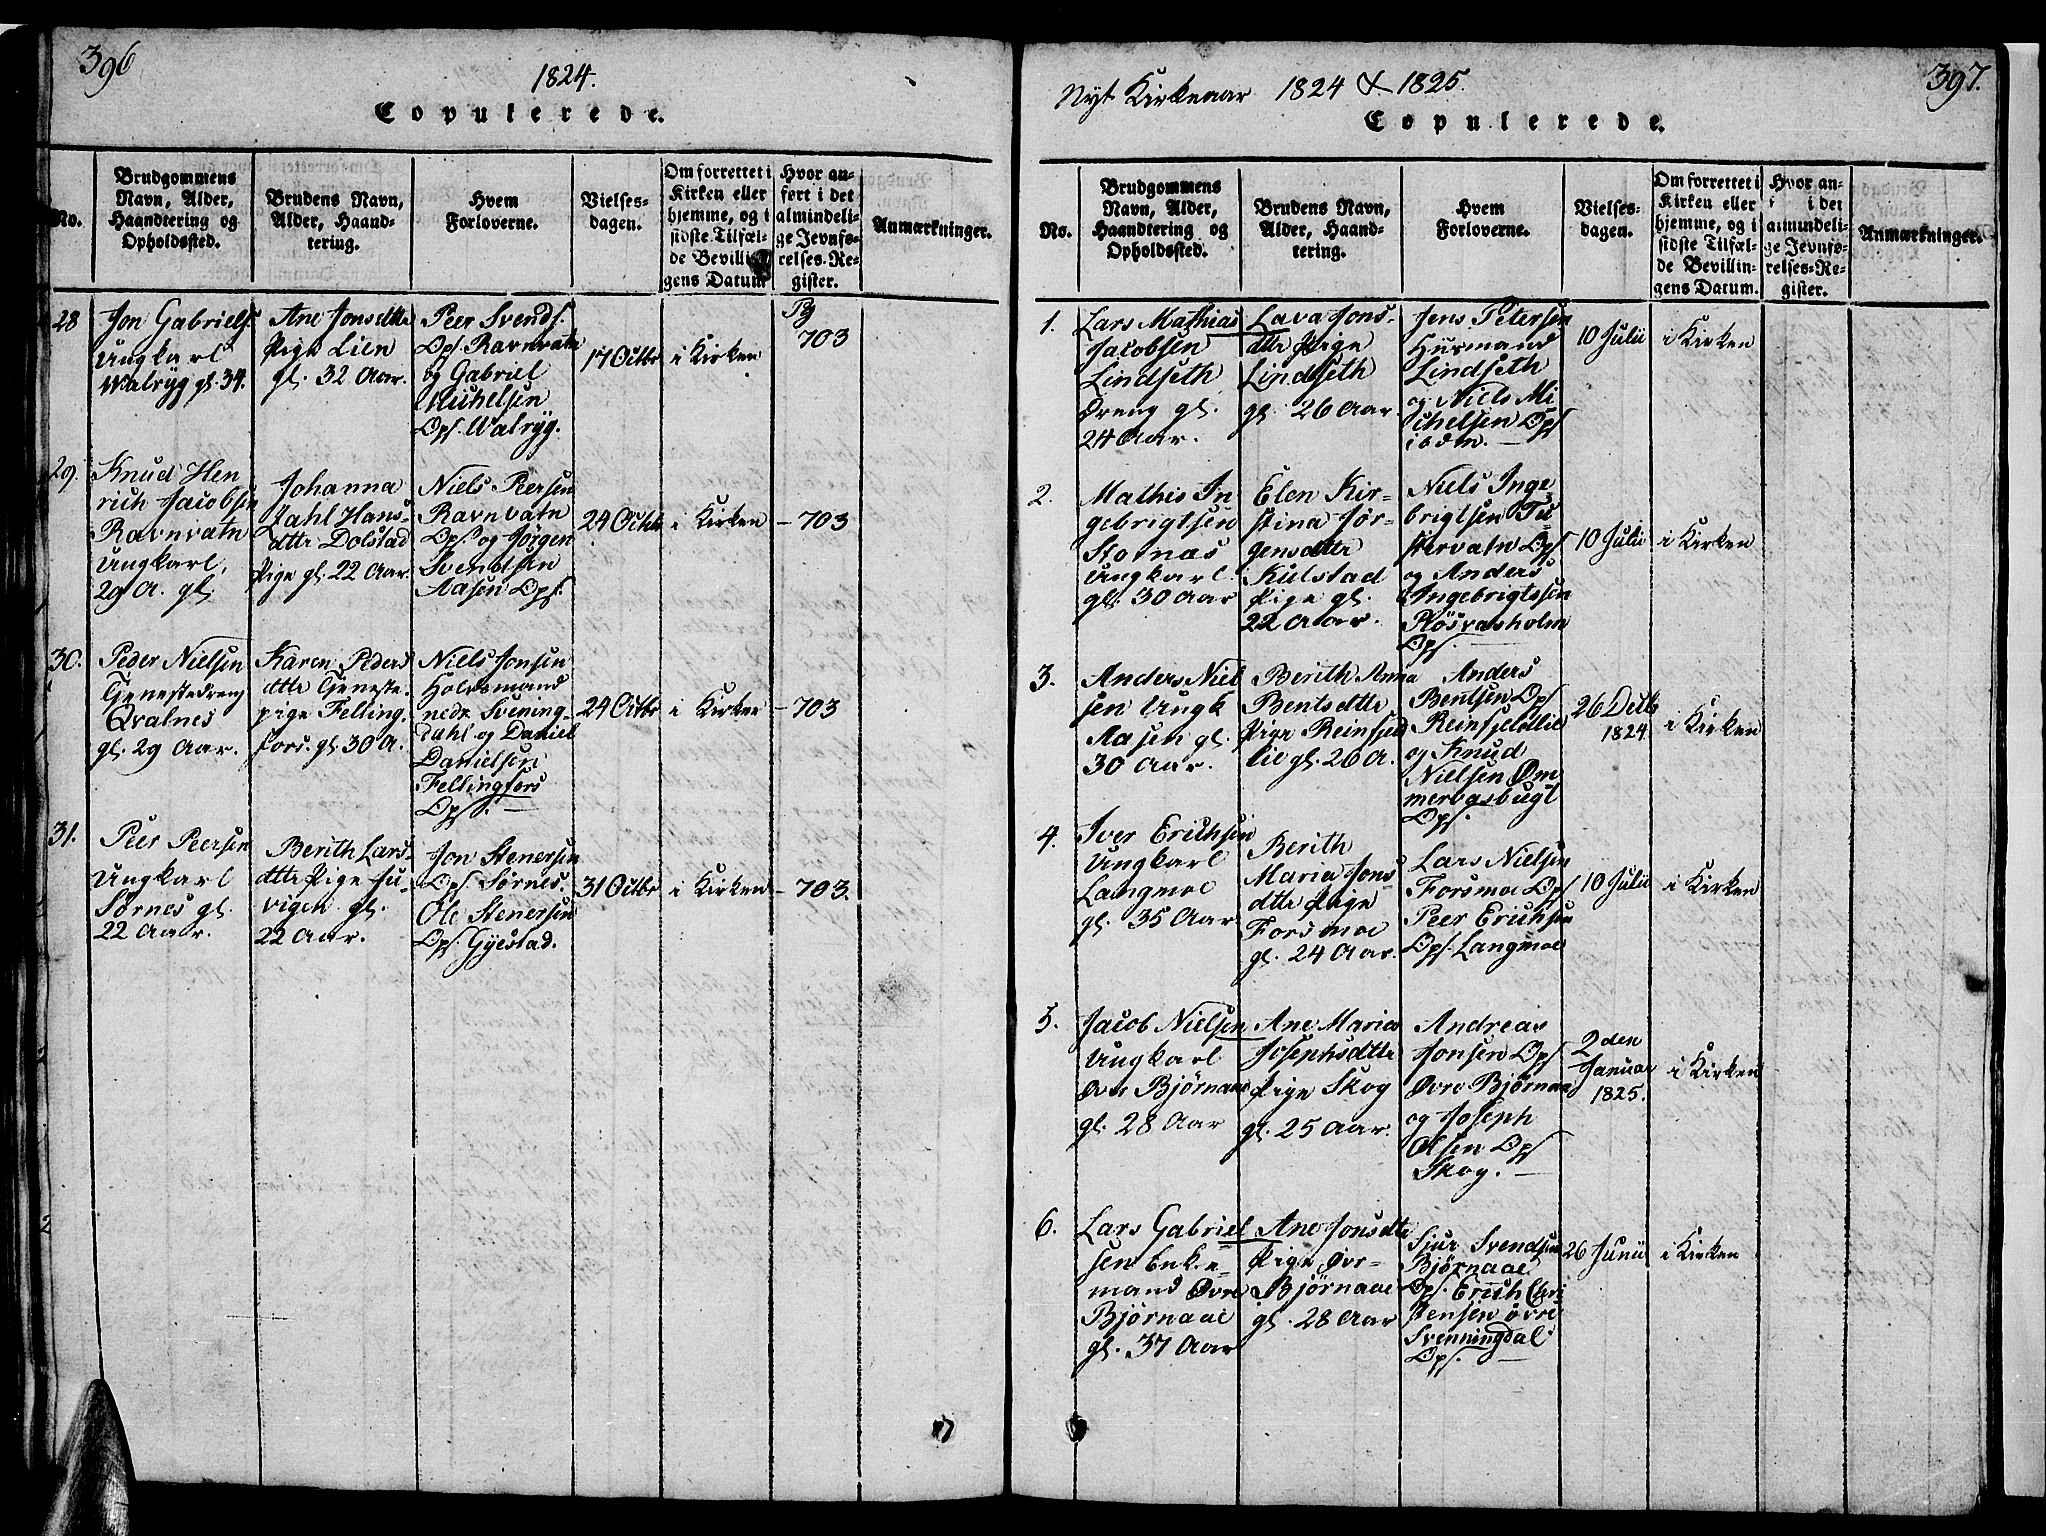 396
1824.
Copulerede.
No.
Brudgommens
Navn, Alder,
Haandtering og
Opholdssted.
Brudens Navn,
Alder, Haand-
tering.
Hvem
Forloverne.
Vielses-
dagen.
Om forrettet i
Kirken eller
hjemme, og i
sidste Tilfæl-
de Bevillin-
gens Datum
Hvor an-
ført i det
almindeli-
ge Jevnfø-
relses-Re-
gister.
Anmærkninger.
28
Jon Gabriels.
Ungkarl
Walryg gl. 34.
Ane Jonsdtte
Pige Lien
gl. 32 Aar.
Peer Svends.
Ops. Ravnvatn
og Gabriel
Michelsen
Ops. Walryg.
17 Octbr
i Kirken
Pg
703
29.
Knud Hen
rich Jacobsen
Ravnvatn
Ungkarl,
29 A. gl.
Johanna
Dahl Hans-
dtte Dolstad
Pige gl. 22 Aar.
Niels Peersen
Ravnvatn
Ops og Jörgen
Svendsen
Aasen Ops.
24 Octbr
i Kirken
- 703
30.
Peder Nielsen
Tjenestedreng
Qvalnes
gl. 29 Aar.
Karen Peders
dtte Tjeneste-
pige Felling-
fors. gl. 30 A.
Niels Jonsen
Holdsmand
nedr Svening-
dahl og Daniel
Danielsen
Fellingfors
Ops.
24 Octbr
i Kirken
- 703
31.
Peer Peersen
Ungkarl
Sörnes gl.
22 Aar.
Berith Lars-
dtte Pige Ju-
vigen gl.
22 Aar.
Jon Stenersen
Ops Sörnes.
Ole Stenersen
Ops. Gyestad.
31 Octbr
i Kirken
- 703.
397.
Nyt Kirkeaar 1824 & 1825.
Copulerede.
No.
Brudgommens
Navn, Alder,
Haandtering og
Opholdssted.
Brudens Navn,
Alder, Haand-
tering.
Hvem
Forloverne.
Vielses-
dagen.
Om forrettet i
Kirken eller
hjemme, og i
sidste Tilfæl-
de Bevillin-
gens Datum.
Hvor an-
i det
almindeli-
ge Jevnfø-
relses-Re-
gister.
Anmærkninger.
1.
Lars Mathias
Jacobsen
Lindseth
Dreng gl.
24 Aar.
Lava Jons-
dtte Pige
Lindseth
gl. 26 Aar.
Jens Petersen
Husmand
Lindseth
og Niels Mi
chelsen Ops
ibdm.
10 Julii
i Kirken
2.
Mathis In
gebrigtsen
Stornæs
Ungkarl
gl. 30 Aar
Elen Kir-
stina Jör-
gensdtte
Kulstad
Pige gl.
22 Aar.
Niels Inge
brigtsen Tu-
stervatn Ops
og Anders
Ingebrigtsen
Rösvasholm
Ops.
10 Julii
i Kirken
3.
Anders Niel
sen Ungk
Aasen gl.
30 Aar.
Berith Anna
Bentsdtte
Pige Reinfjeld
lie gl. 26 A.
Anders
Bentsen Ops
Reinfjeldlie
og Knud
Nielsen Öm
merbasbugt
Ops.
26 Decb
1824
i Kirken
4.
Iver Erichsen
Ungkarl
Langmoe
gl. 35 Aar
Berith
Maria Jons
dtte Pige
Forsmoe
gl. 24 Aar.
Lars Nielsen
Forsmoe Ops
Peer Erichsen
Ops. Langmoe
10 Julii
i Kirken
5.
Jacob Nielsen
Ungkarl
Övre Björnaae
gl. 28 Aar
Ane Maria
Josephsdtte
Pige Skog
gl. 25 Aar.
Andreas
Jonsen Ops
Övre Björnaa
og Joseph
Olsen Ops
Skog.
2den
Januar
1825.
i Kirken
6.
Lars Gabriel
sen Enke-
mand Övre
Björnaae
gl. 37 Aar
Ane Jonsdtte
Pige Övr-
Björnaae
gl. 28 Aar
Sjur Svendsen
Björnaae
Ops. Erich Chri
stensen övre
Svenningdal
Ops.
26 Junii
i Kirken